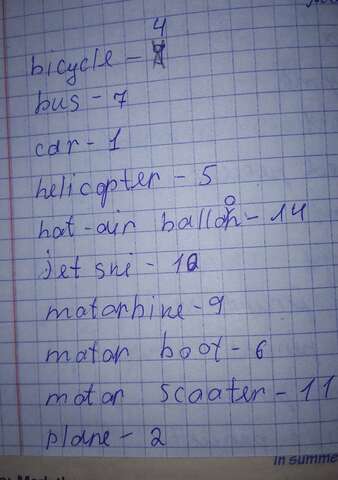 bicycle - 4
bus - 7
car - 1
helicopter - 5
hot-air balloon - 14
jet ski - 10
motorbike - 9
motor boat - 6
motor scooter - 11
plane - 2
in summe